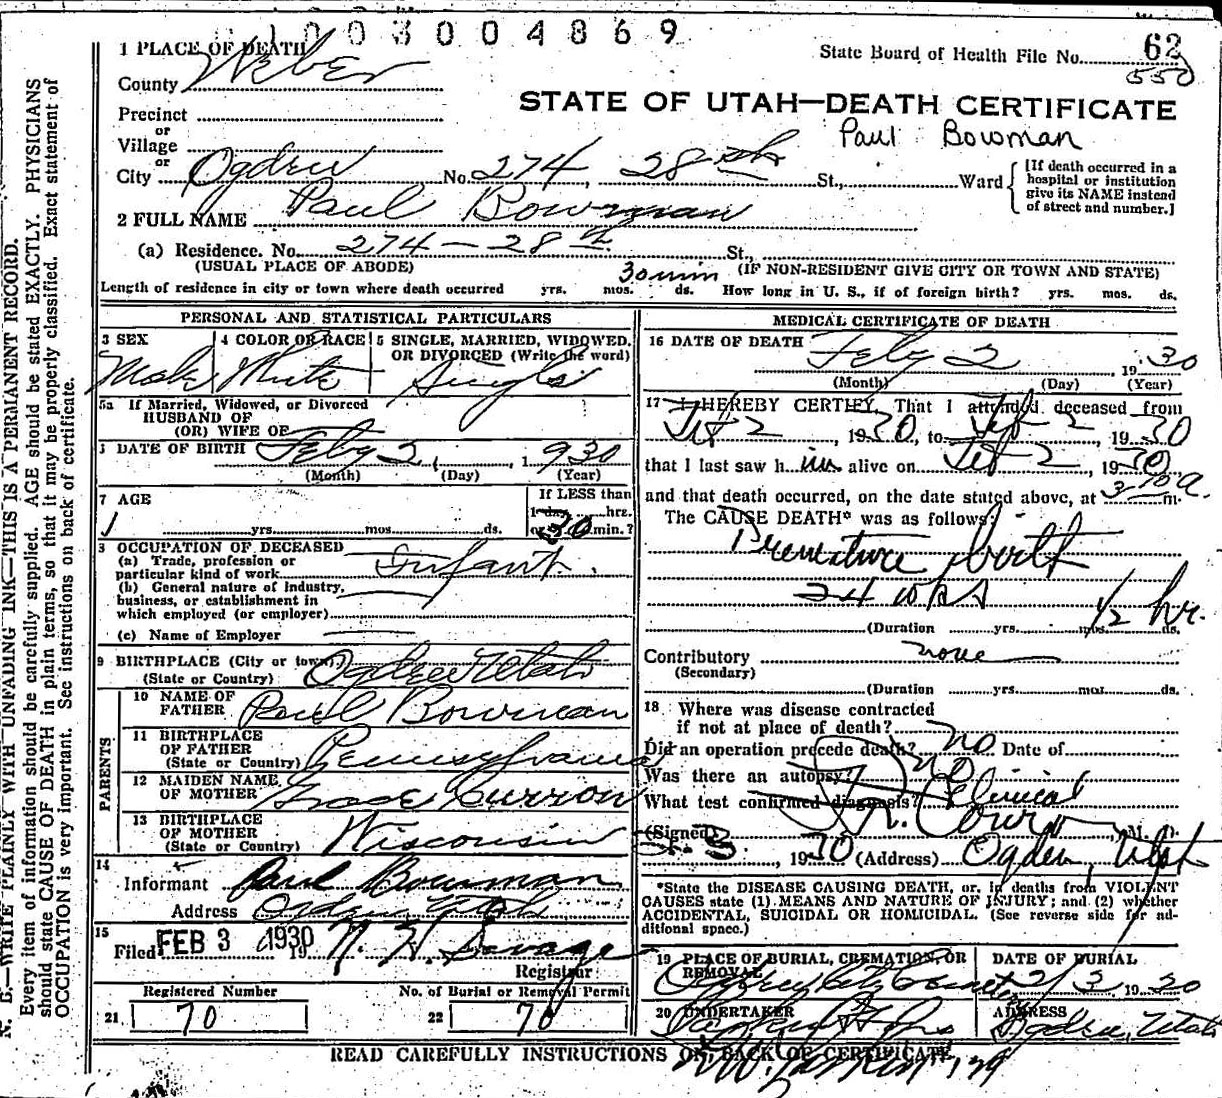 1003004869
1 PLACE OF DEATH
State Board of Health File No. 62
550
County Weber
STATE OF UTAH—DEATH CERTIFICATE
Precinct
or
Paul Bowman
Village
or
City Ogden No. 274, 28th St., Ward
[If death occurred in a
hospital or institution
give its NAME instead
of street and number.]
2 FULL NAME Paul Bowman
(a) Residence. No. 274 - 28th St.,
(USUAL PLACE OF ABODE) (IF NON-RESIDENT GIVE CITY OR TOWN AND STATE)
30 min
Length of residence in city or town where death occurred yrs. mos. ds. How long in U. S., if of foreign birth? yrs. mos. ds.
PERSONAL AND STATISTICAL PARTICULARS
3 SEX 4 COLOR OR RACE 5 SINGLE, MARRIED, WIDOWED,
OR DIVORCED (Write the word)
Male White Single
5a If Married, Widowed, or Divorced
HUSBAND OF
(OR) WIFE OF
DATE OF BIRTH Feby 2, 1930
(Month) (Day) (Year)
7 AGE If LESS than
1 day hrs.
yrs. mos. ds. or 30 min.?
8 OCCUPATION OF DECEASED
(a) Trade, profession or
particular kind of work Infant.
(b) General nature of industry,
business, or establishment in
which employed (or employer)
(c) Name of Employer
9 BIRTHPLACE (City or town) Ogden Utah
(State or Country)
PARENTS
10 NAME OF
FATHER Paul Bowman
11 BIRTHPLACE
OF FATHER
(State or Country) Pennsylvania
12 MAIDEN NAME
OF MOTHER Grace Curron
13 BIRTHPLACE
OF MOTHER
(State or Country) Wisconsin
14
Informant Paul Bowman
Address Ogden Utah
15
Filed FEB 3 1930 19 N. H. Savage
Registrar
Registered Number No. of Burial or Removal Permit
21 70 22 70
MEDICAL CERTIFICATE OF DEATH
16 DATE OF DEATH Feby 2, 1930
(Month) (Day) (Year)
17 I HEREBY CERTIFY, That I attended deceased from
Feb 2, 1930, to Feb 2, 1930
that I last saw him alive on Feb 2, 1930
and that death occurred, on the date stated above, at 3 10 a. m.
The CAUSE DEATH* was as follows:
Premature birth
24 wks
1/2 hr.
(Duration yrs. mos. ds.
Contributory none
(Secondary)
(Duration yrs. mos. ds.
18 Where was disease contracted
if not at place of death?
Did an operation precede death? no Date of
Was there an autopsy? no
What test confirmed diagnosis? Clinical
(Signed) M. D.
1930 (Address) Ogden, Utah
*State the DISEASE CAUSING DEATH, or, in deaths from VIOLENT
CAUSES state (1) MEANS AND NATURE OF INJURY; and (2) whether
ACCIDENTAL, SUICIDAL OR HOMICIDAL. (See reverse side for ad-
ditional space.)
19 PLACE OF BURIAL, CREMATION, OR
REMOVAL
Ogden City Cemetery
DATE OF BURIAL
2/3 1930
20 UNDERTAKER
ADDRESS
Ogden, Utah
READ CAREFULLY INSTRUCTIONS ON BACK OF CERTIFICATE
N. B.—WRITE PLAINLY WITH UNFADING INK—THIS IS A PERMANENT RECORD.
Every item of information should be carefully supplied. AGE should be stated EXACTLY. PHYSICIANS
should state CAUSE OF DEATH in plain terms, so that it may be properly classified. Exact statement of
OCCUPATION is very important. See instructions on back of certificate.